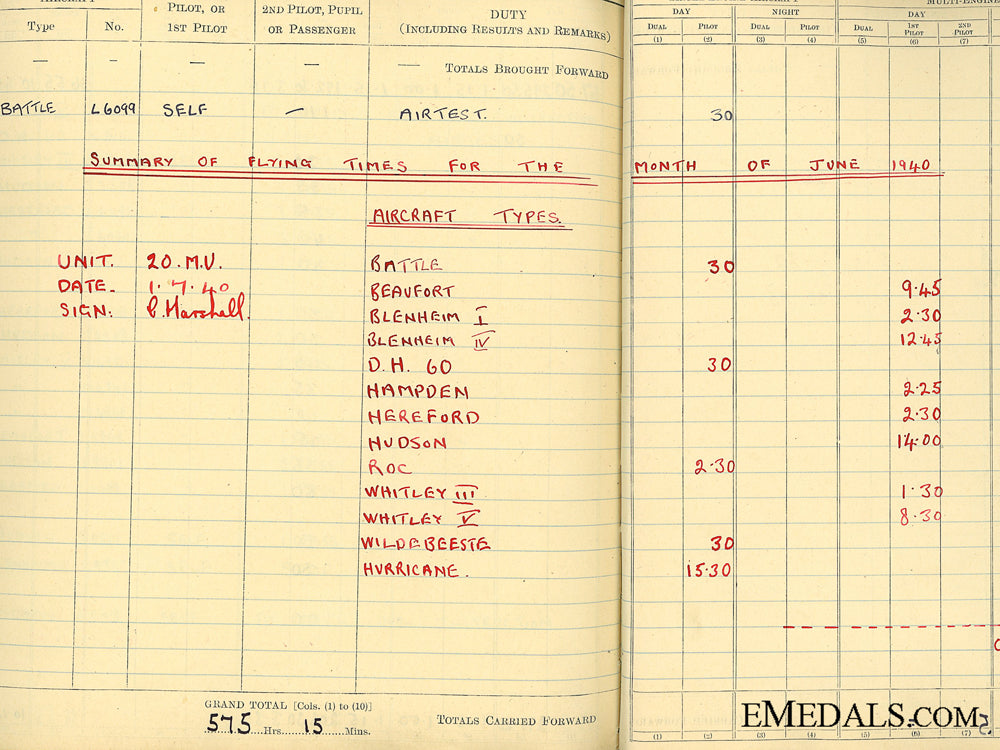 AIRCRAFT PILOT, OR 2ND PILOT, PUPIL DUTY MULTI-ENGINE
Type No. 1ST PILOT OR PASSENGER (INCLUDING RESULTS AND REMARKS)
DAY NIGHT DAY
DUAL PILOT DUAL PILOT DUAL 1ST PILOT 2ND PILOT
(1) (2) (3) (4) (5) (6) (7)
— — — — — TOTALS BROUGHT FORWARD
BATTLE L6099 SELF — AIRTEST. 30
SUMMARY OF FLYING TIMES FOR THE MONTH OF JUNE 1940
AIRCRAFT TYPES.
UNIT. 20.M.U. BATTLE 30
DATE. 1.7.40 BEAUFORT 9.45
SIGN: C. Marshall. BLENHEIM I 2.30
BLENHEIM IV 12.45
D.H. 60 30
HAMPDEN 2.25
HEREFORD 2.30
HUDSON 14.00
ROC 2.30
WHITLEY III 1.30
WHITLEY V 8.30
WILDEBEESTE 30
HURRICANE. 15.30
GRAND TOTAL [Cols. (1) to (10)]
575 Hrs. 15 Mins. TOTALS CARRIED FORWARD
EMEDALS.COM
(1) (2) (3) (4) (5) (6) (7)